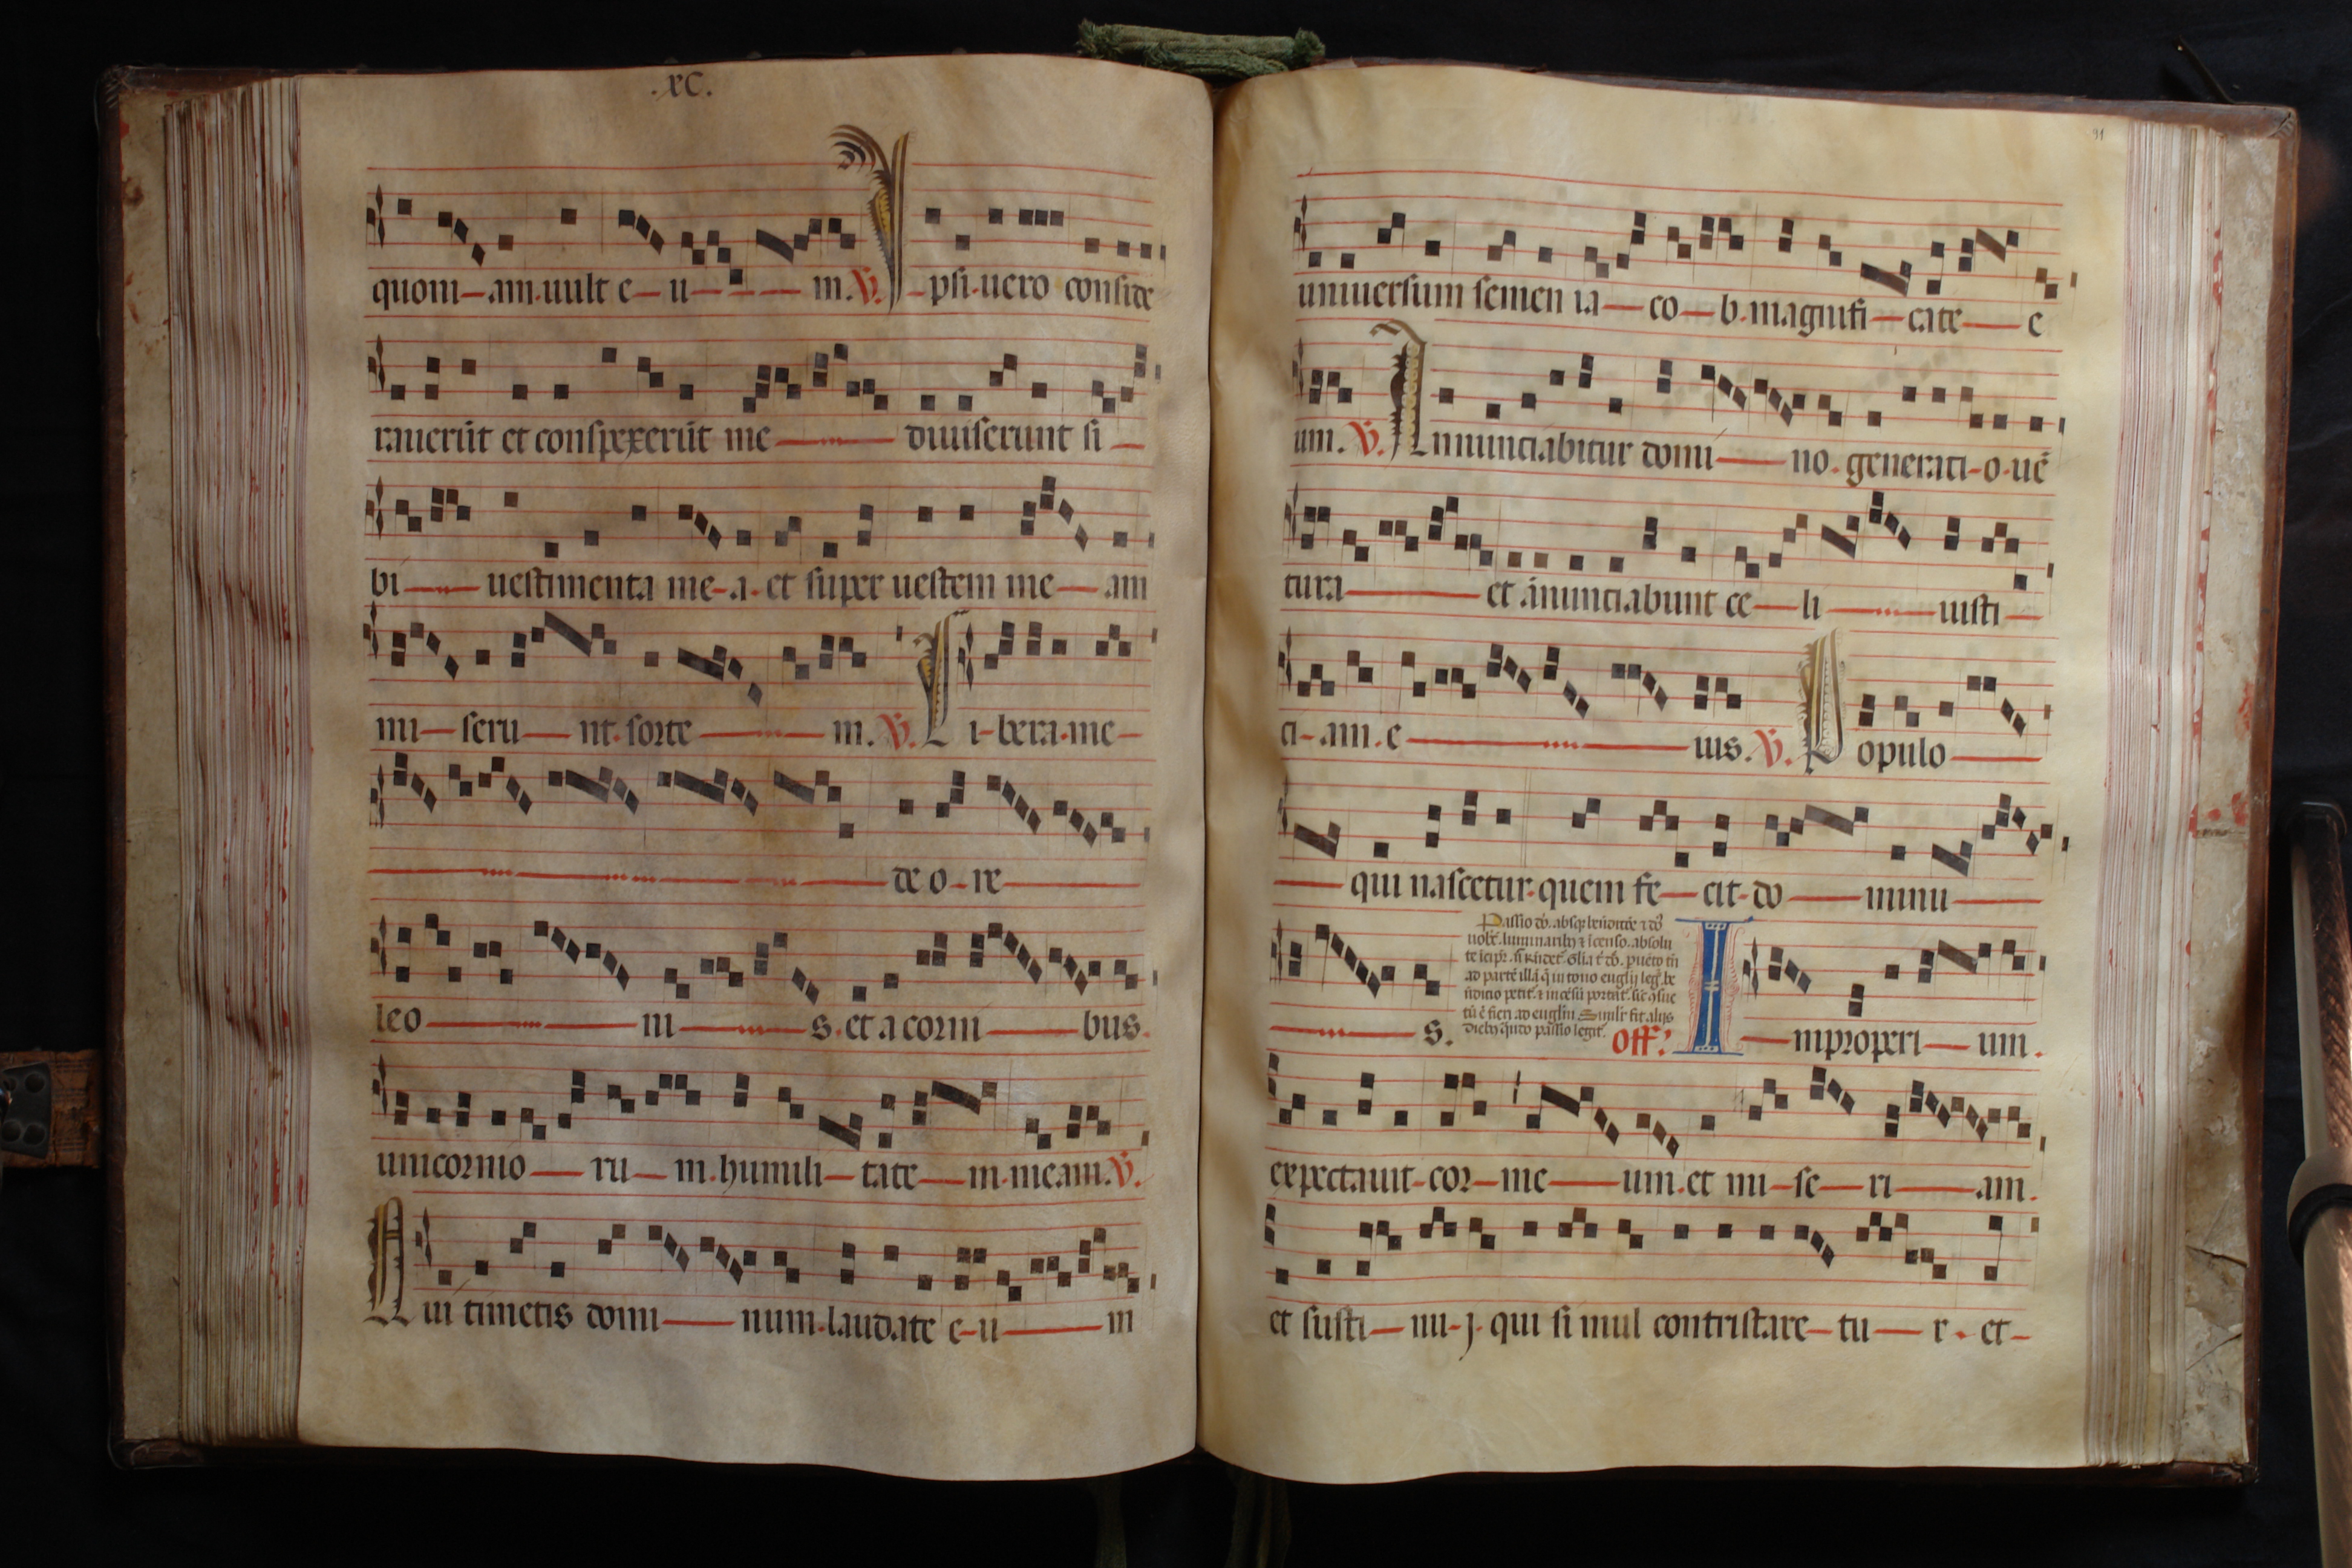 .xC.
quoni-am.uult e-u-m. V. Ipsi.uero conside
rauerūt et conspexerūt me diuiserunt si-
bi- uestimenta me-a. et super uestem me-am
mi-seru-nt.sorte-m. V. Libera.me-
de o-re-
leo-ni-s.et a corni-bus.
unicornio-ru-m.humili-tate-m.meam. V.
Qui timetis domi-num.laudate e-u-m
91
uniuersum semen ia-co-b.magnifi-cate-e
um. V. Annunciabitur domi-no.generati-o.uē
tura- et ānunciabunt ce-li-iusti-
ci-am.e-ius. V. Populo-
qui nascetur.quem fe-cit.do-minu-
s.
Off. Improperi-um.
expectauit-cor-me-um.et mi-se-ri-am.
et susti-nu-j.qui simul contristare-tu-r.et-